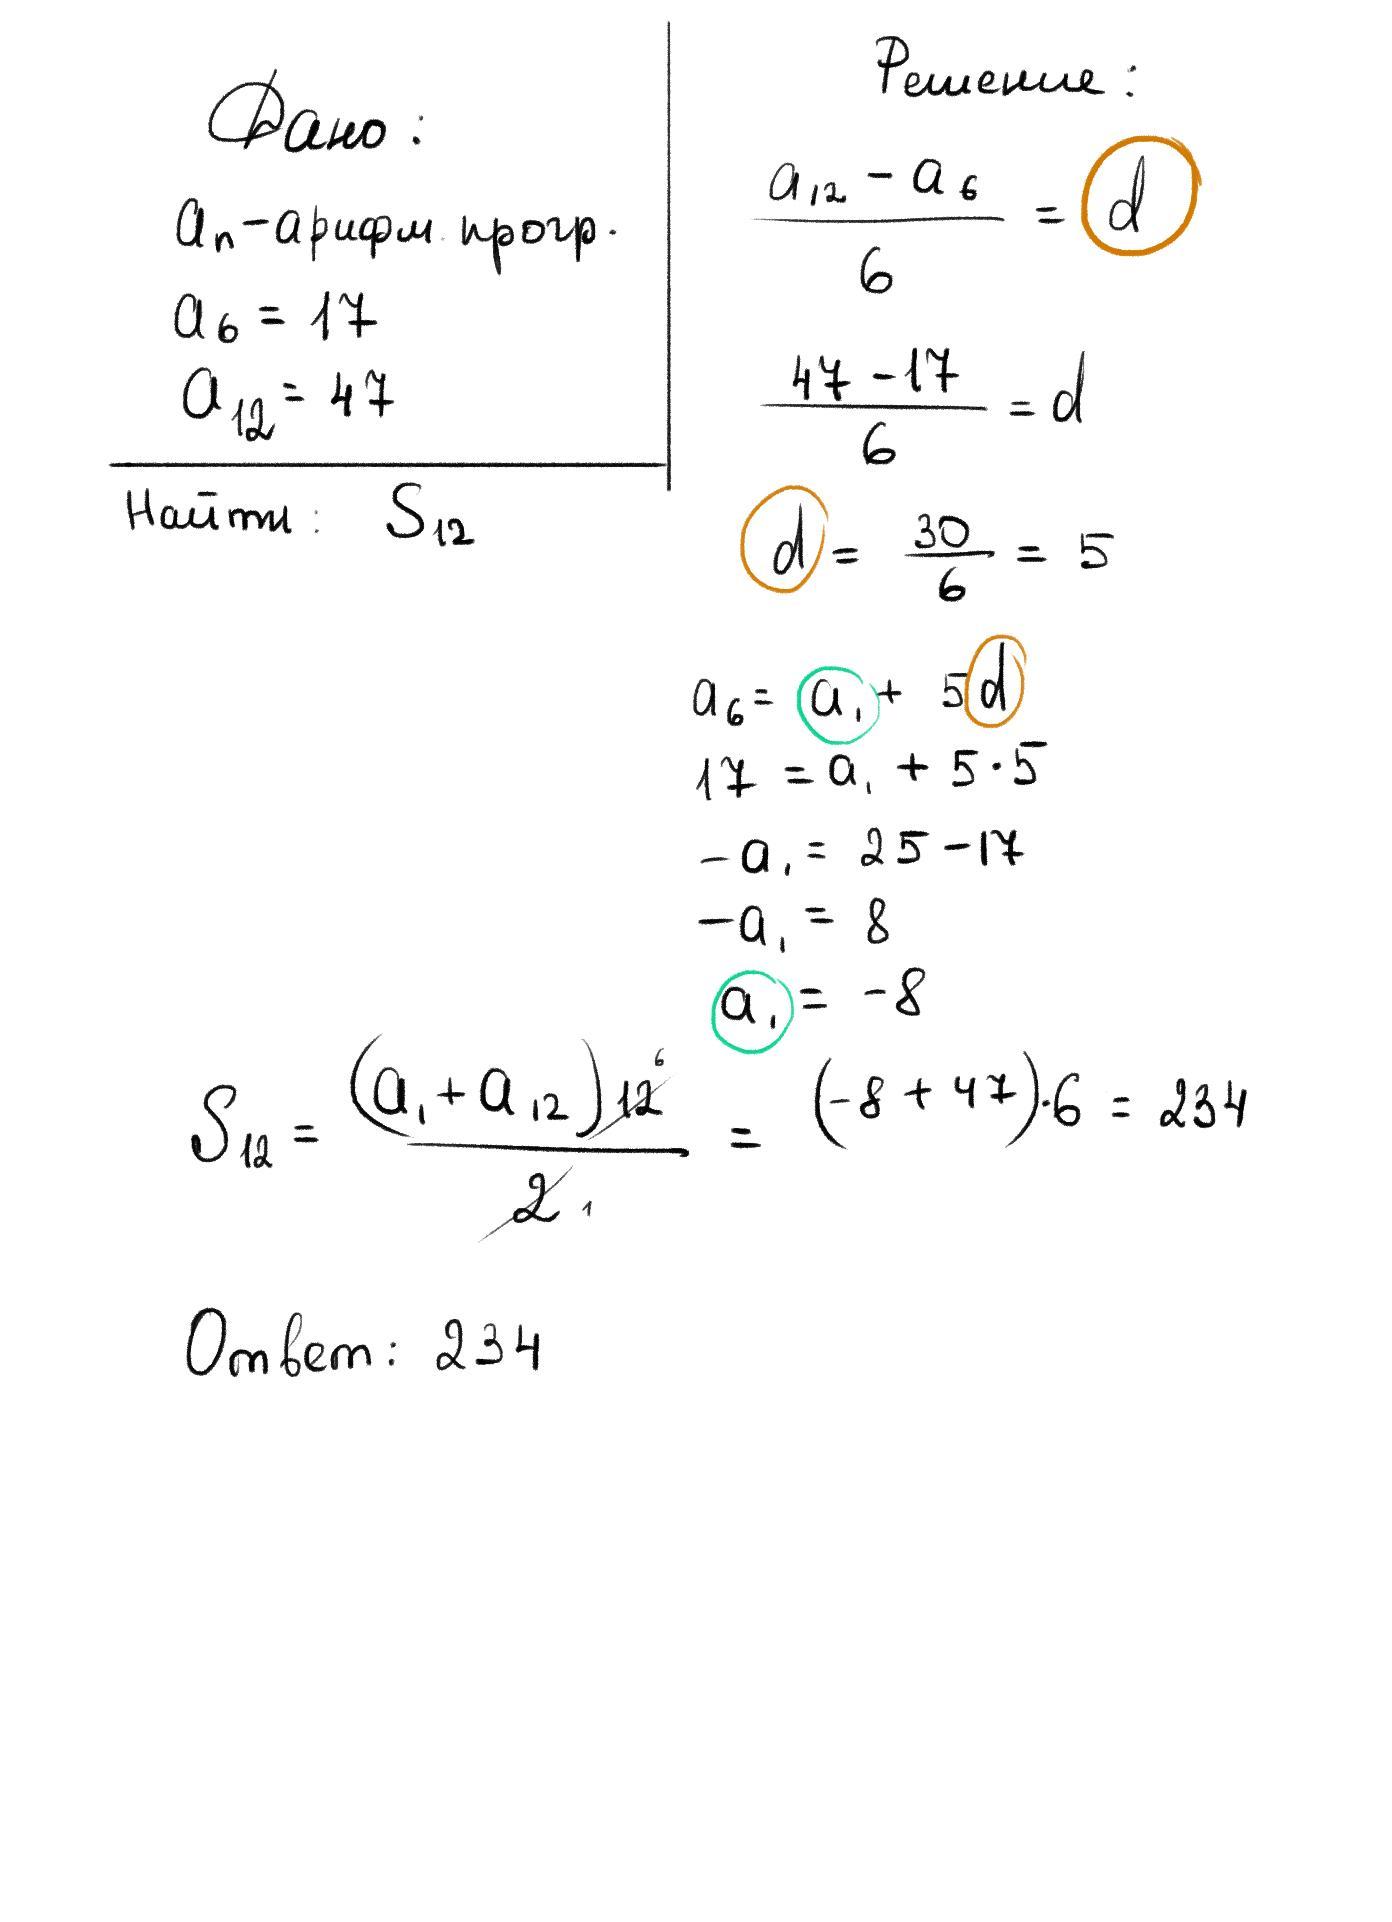 Дано:
aₙ - арифм. прогр.
a₆ = 17
a₁₂ = 47
Найти: S₁₂
Решение:
(a₁₂ - a₆)/6 = d
(47 - 17)/6 = d
d = 30/6 = 5
a₆ = a₁ + 5d
17 = a₁ + 5·5
-a₁ = 25 - 17
-a₁ = 8
a₁ = -8
S₁₂ = (a₁ + a₁₂)12⁶/2 ₁ = (-8 + 47)·6 = 234
Ответ: 234